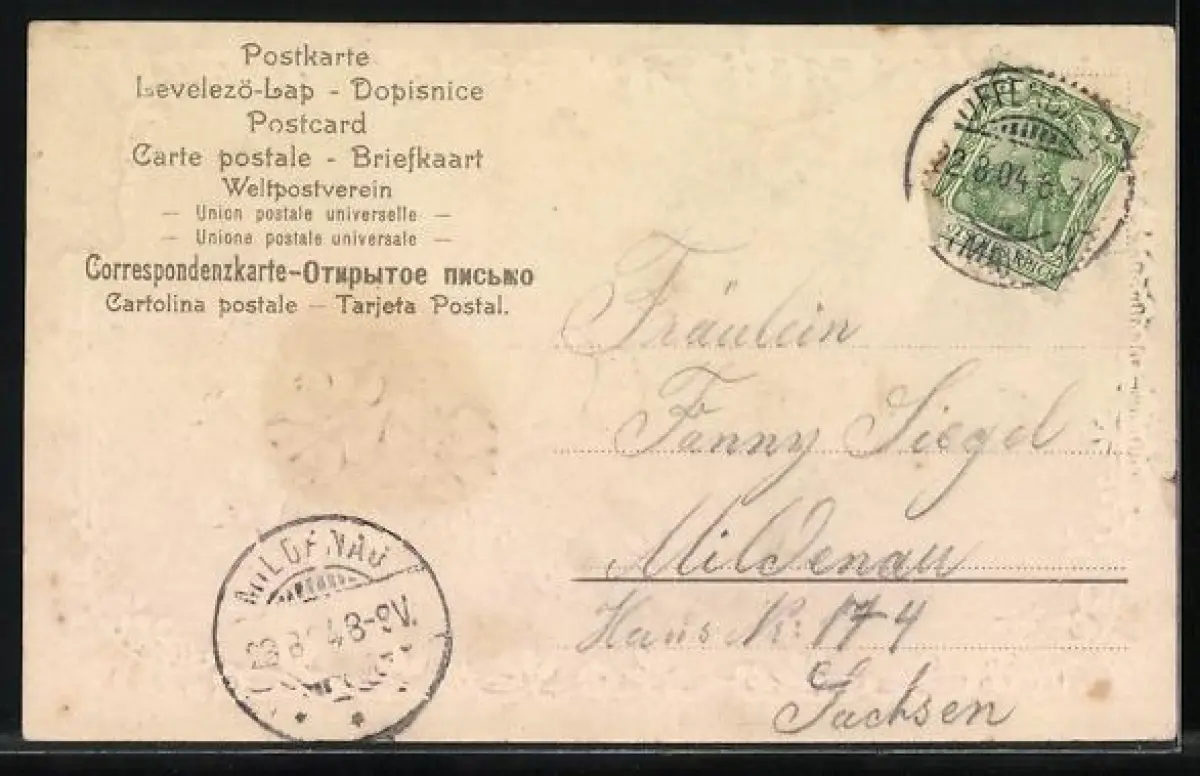 Postkarte
Levelező-Lap - Dopisnice
Postcard
Carte postale - Briefkaart
Weltpostverein
— Union postale universelle —
— Unione postale universale —
Correspondenzkarte-Открытое письмо
Cartolina postale — Tarjeta Postal.
22.8.04.6-7
Fräulein
Fanny Siegel
Mildenau
Haus Nr: 174
Sachsen
MILDENAU
23.8.04 8-9V.